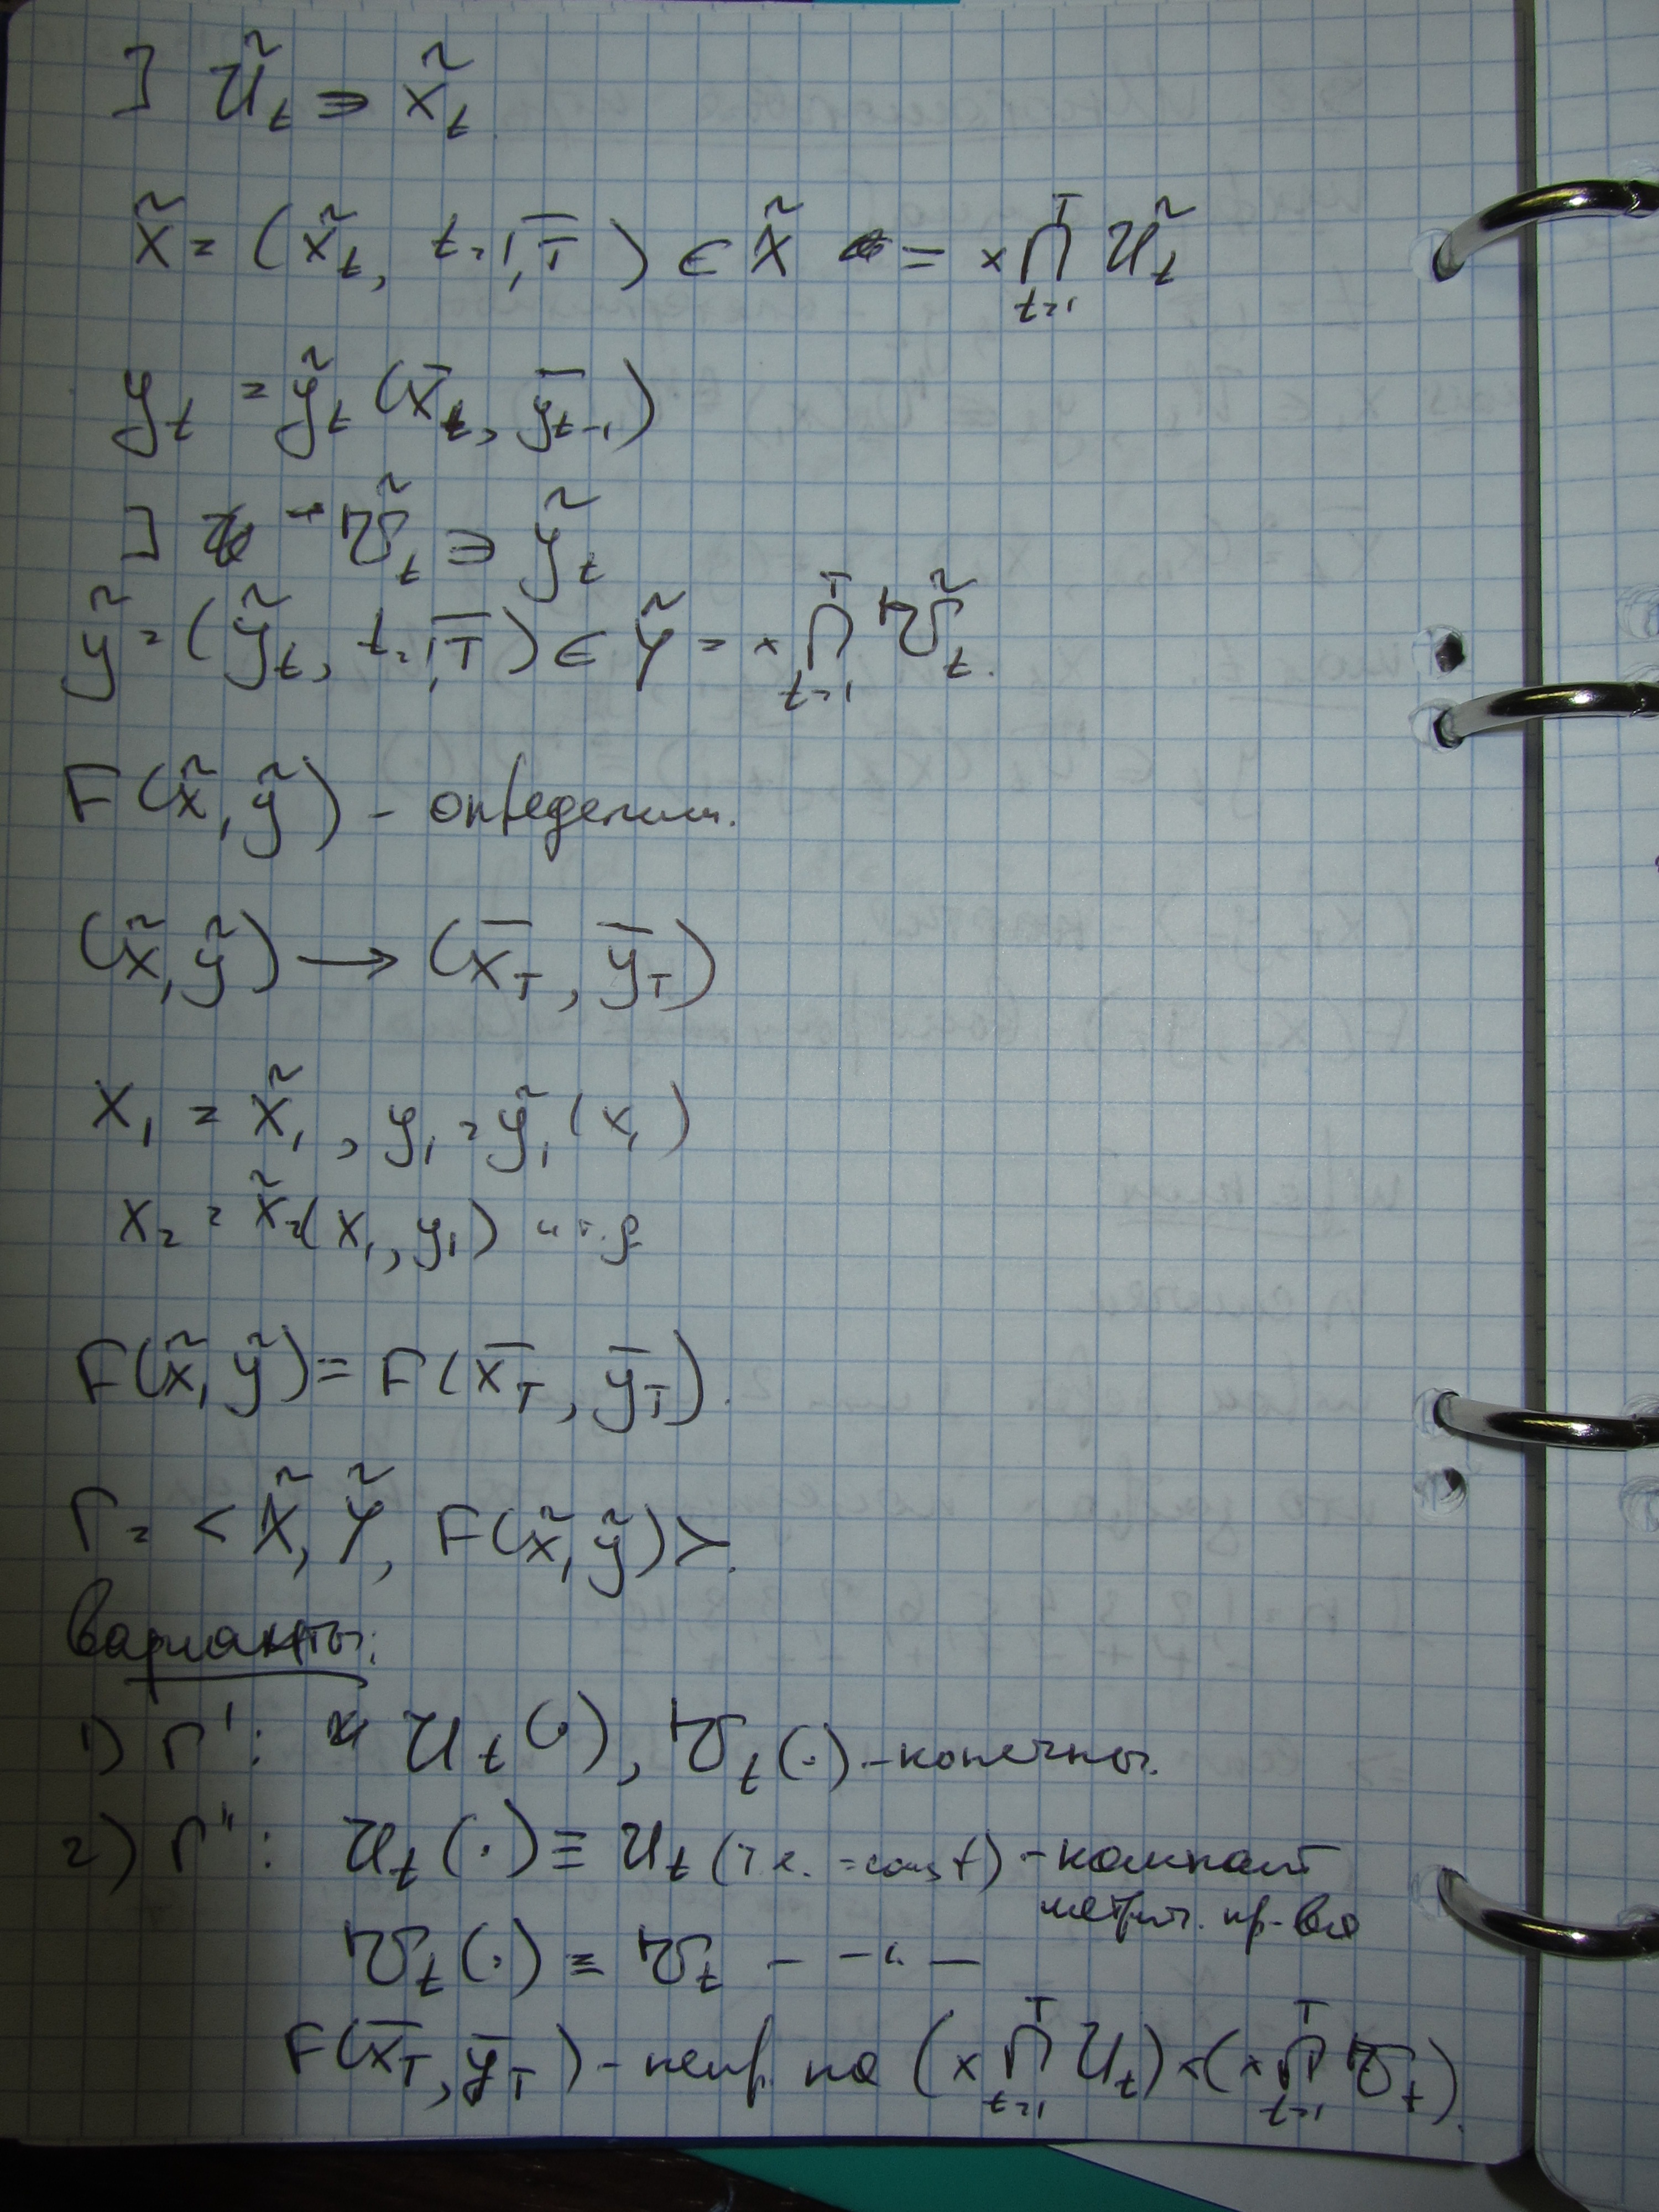 ] Ũ_t ∋ x̃_t
x̃ = (x̃_t, t=1,T̅) ∈ X̃ = ×∏_{t=1}^{T} Ũ_t
y_t = ỹ_t (x̅_t, y̅_{t-1})
] Ṽ_t ∋ ỹ_t
ỹ = (ỹ_t, t=1,T̅) ∈ Ỹ = ×∏_{t=1}^{T} Ṽ_t.
F(x̃, ỹ) - определим.
(x̃, ỹ) → (x̅_T, y̅_T)
x_1 = x̃_1, y_1 = ỹ_1(x_1)
x_2 = x̃_2(x_1, y_1) и т.д
F(x̃, ỹ) = F(x̅_T, y̅_T).
Γ = < X̃, Ỹ, F(x̃, ỹ) >.
Варианты:
1) Γ' : U_t(·), V_t(·) - конечны.
2) Γ'' : U_t(·) ≡ U_t (т.е. = const) - компакт
метрич. пр-ва
V_t(·) ≡ V_t - -"- -
F(x̅_T, y̅_T) - непр. на (×∏_{t=1}^{T} U_t) × (×∏_{t=1}^{T} V_t).